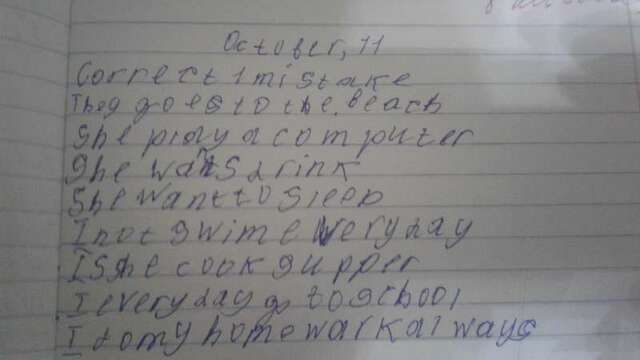 October, 11
Correct 1 mistake
They goes to the beach
She play a computer
She wants drink
She want to sleep
I not swim every day
Is she cook supper
I every day go to school
I do my homewark always